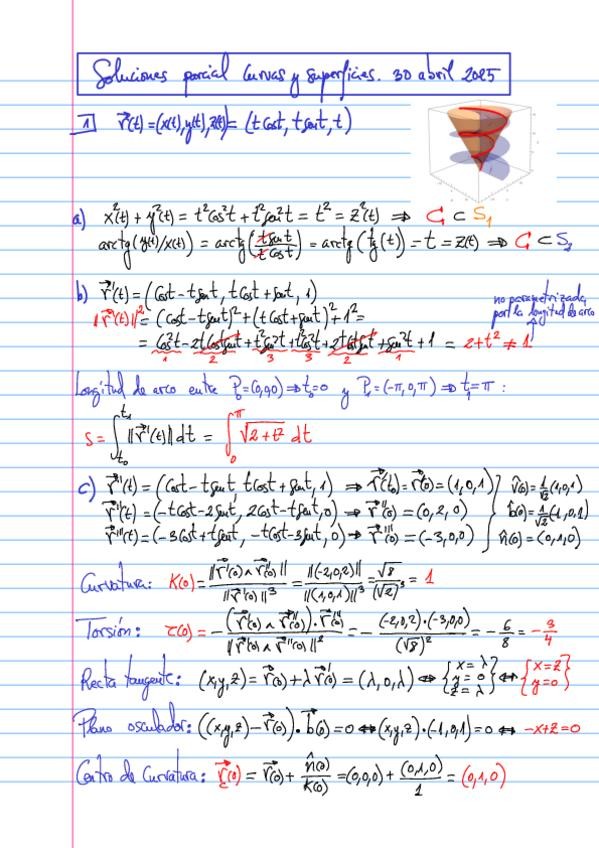 Soluciones parcial Curvas y superficies. 30 abril 2025
1 r⃗(t)=(x(t),y(t),z(t))=(t Cost, t sent, t)
a) x²(t)+y²(t)=t²Cos²t+t²sen²t=t²=z²(t) ⇒ C₁⊂S₁
arctg(y(t)/x(t))=arctg(t sent/t Cost)=arctg(tg(t))=t=z(t) ⇒ C₁⊂S₂
b) r⃗'(t)=(Cost-t sent, t Cost+sent, 1)
no parametrizada
por la longitud de arco
||r⃗'(t)||²=(Cost-t sent)²+(t Cost+sent)²+1²=
=Cos²t-2t Cost sent+t²sen²t+t²Cos²t+2t Cost sent+sen²t+1=2+t²≠1
1 2 3 3 2 1
Longitud de arco entre P₀=(0,0,0)⇒t₀=0 y P₁=(-π,0,π)⇒t₁=π:
s=∫_{t₀}^{t₁}||r⃗'(t)||dt=∫₀^π √(2+t²) dt
c) r⃗'(t)=(Cost-t sent, t Cost+sent, 1) ⇒ r⃗'(t₀)=r⃗'(0)=(1,0,1) v̂(0)=1/√2(1,0,1)
r⃗''(t)=(-t Cost-2sent, 2Cost-t sent, 0) ⇒ r⃗''(0)=(0,2,0) b̂(0)=1/√2(-1,0,1)
r⃗'''(t)=(-3Cost+t sent, -t Cost-3sent, 0) ⇒ r⃗'''(0)=(-3,0,0) n̂(0)=(0,1,0)
Curvatura: K(0)=||r⃗'(0)∧r⃗''(0)||/||r⃗'(0)||³=||(-2,0,2)||/||(1,0,1)||³=√8/(√2)³=1
Torsión: τ(0)=-(r⃗'(0)∧r⃗''(0))·r⃗'''(0)/||r⃗'(0)∧r⃗''(0)||²=-(-2,0,2)·(-3,0,0)/(√8)²=-6/8=-3/4
Recta tangente: (x,y,z)=r⃗(0)+λr⃗'(0)=(λ,0,λ) ⇔ {x=λ y=0 z=λ} ⇔ {x=z y=0}
Plano osculador: ((x,y,z)-r⃗(0))·b⃗(0)=0 ⇔ (x,y,z)·(-1,0,1)=0 ⇔ -x+z=0
Centro de Curvatura: r⃗c(0)=r⃗(0)+n̂(0)/K(0)=(0,0,0)+(0,1,0)/1=(0,1,0)